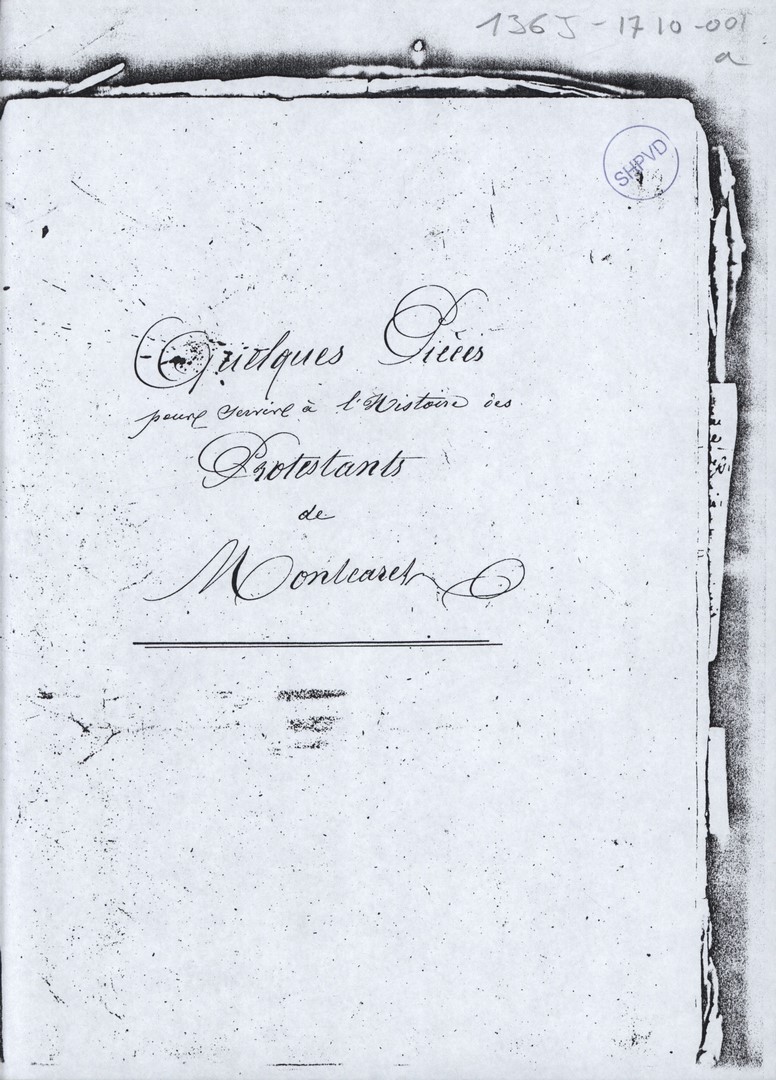 136 J - 17 10 - 001
a
SHPVD
Quelques Pièces
pour servir à l'Histoire des
Protestants
de
Montcaret